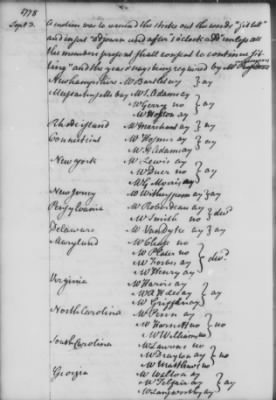 1778
Sept 3.
A motion was to amend the strike out the words "sit till"
and insert "adjourn and after o'clock add" unless all
the members present shall consent to continue sit-
ting" and the yeas & nays being required by Mr
Newhampshire Mr Bartlett ay } ay
Massachusetts bay Mr S. Adams ay
Mr Gerry no } ay
Mr Holten ay
Rhodeisland Mr Marchant ay } ay
Connecticut Mr Hosmer ay } ay
Mr A Adams ay
Newyork Mr Lewis ay
Mr Duer no } ay
Mr G Morris ay
Newjersey Mr Witherspoon ay } ay
Pensylvania Mr Roberdeau ay } divd
Mr Smith no
Delaware Mr VanDyke ay } ay
Maryland Mr Chase no
Mr Plater no } divd
Mr Forbes ay
Mr Henry ay
Virginia Mr Harvie ay
Mr Griffin ay
North Carolina Mr Penn ay
Mr Harnett no } no
Mr Williams no
South Carolina Mr Laurens no
Mr Drayton ay } no
Mr Matthews no
Georgia Mr Walton ay
Mr Telfair ay } ay
Mr Langworthy ay